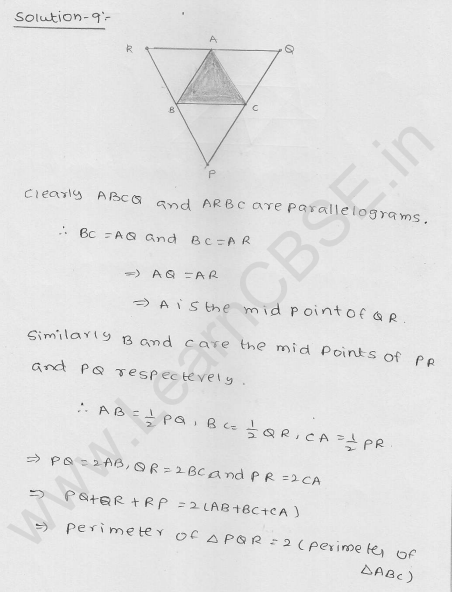 Solution-9:-
A
R
Q
B
C
P
Clearly ABCQ and ARBC are parallelograms.
∴ BC = AQ and BC = AR
⇒ AQ = AR
⇒ A is the mid point of QR.
Similarly B and C are the mid points of PR
and PQ respectevely.
∴ AB = 1/2 PQ, BC = 1/2 QR, CA = 1/2 PR
⇒ PQ = 2AB, QR = 2BC and PR = 2CA
⇒ PQ+QR+RP = 2(AB+BC+CA)
⇒ perimeter of △PQR = 2(perimeter of
△ABC)
www.LearnCBSE.in